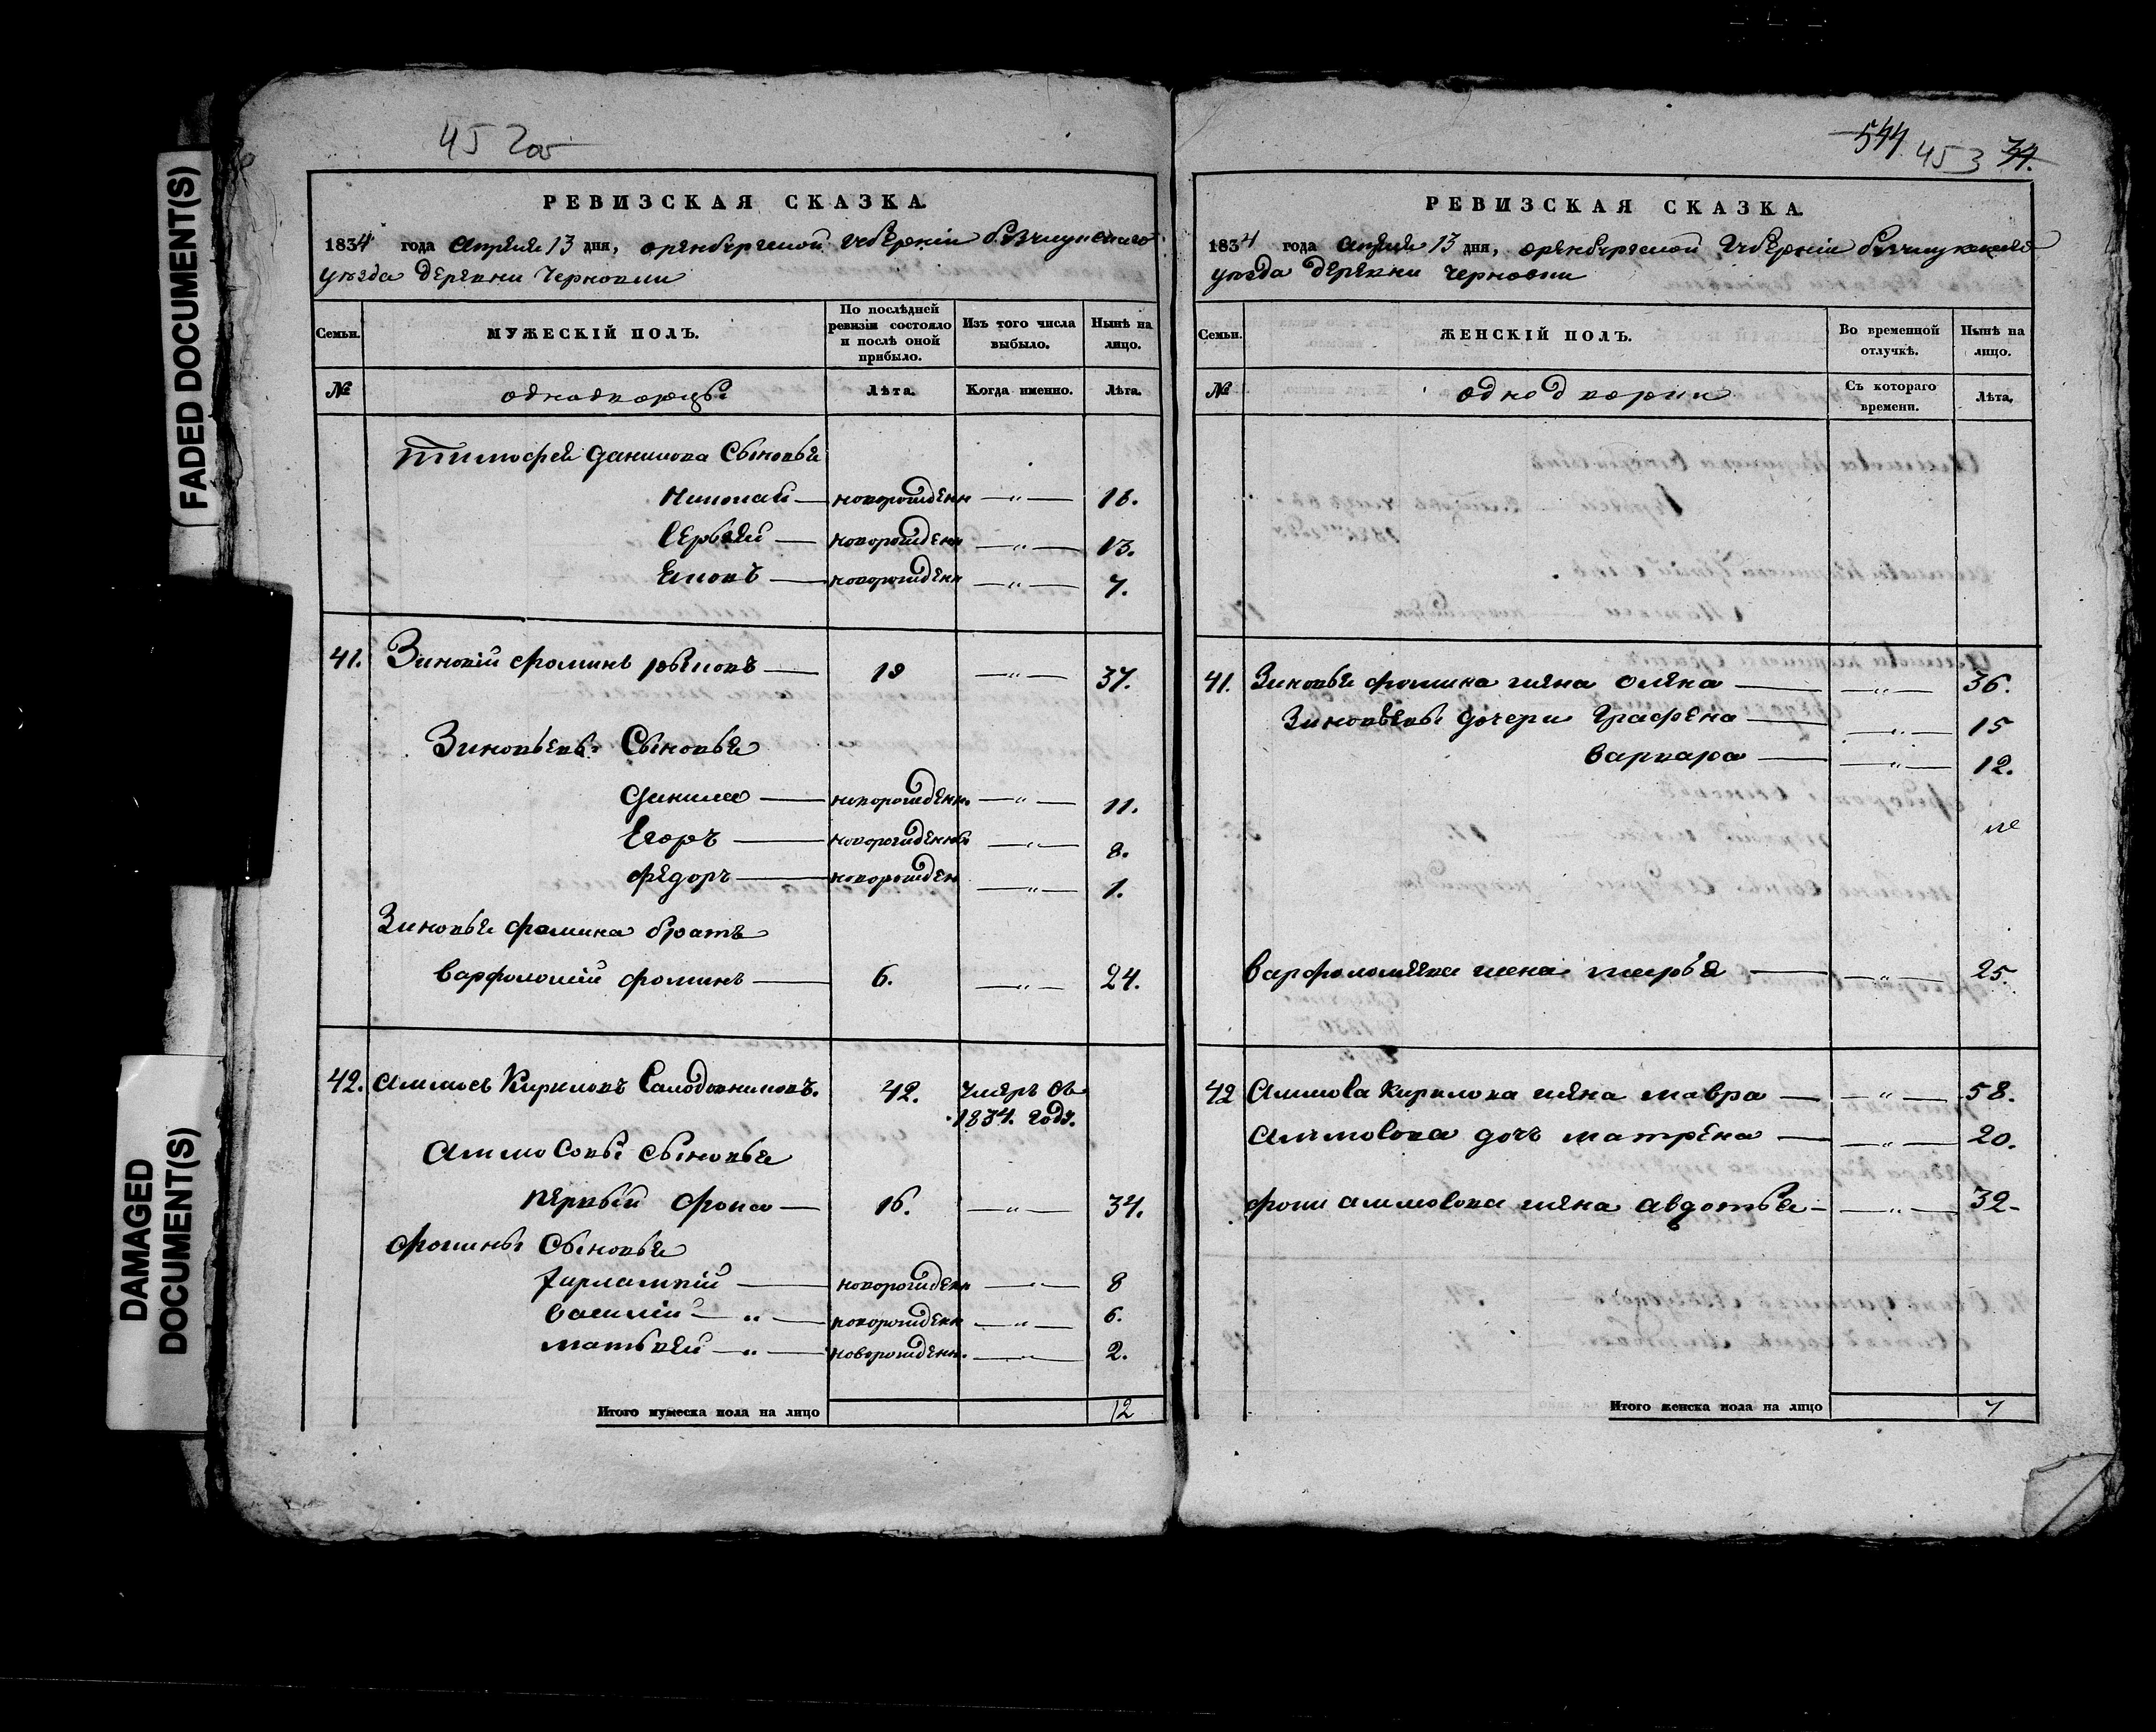 FADED DOCUMENT(S)
DAMAGED DOCUMENT(S)
452об
РЕВИЗСКАЯ СКАЗКА.
1834 года Апреля 13 дня, оренбурской губернии бузулуцкаго
уезда деревни Черновки
Семьи.
МУЖЕСКІЙ ПОЛЪ.
По послѣдней ревизіи состояло и послѣ оной прибыло.
Изъ того числа выбыло.
Нынѣ на лицо.
№
однодворцы
Лѣта.
Когда именно.
Лѣта.
Тимофея Данилова Сыновья
Николай — новорожденн — „ — 16.
Сергей — новорожденн — „ — 13.
Яковъ — новорожденн — „ — 7.
41. Зиновій Фоминъ — 19 — „ — 37.
Зиновьевы Сыновья
Данила — новорожденн. — „ — 11.
Егоръ — новорожденны — „ — 8.
Федоръ — новорожден — „ — 1.
Зиновья Фомина братъ
Варфоломій Фоминъ — 6. — „ — 24.
42. Аммосъ Кириловъ Солодовниковъ. 42. умеръ въ
1834. году.
Аммосовы Сыновья
первый Фока — 16. — „ — 34.
Фокины Сыновья
Харлампій — новорожденн — „ — 8
Василій — „ — новорожденн — „ — 6.
Матьвей — „ — новорожденн. — „ — 2.
Итого мужеска пола на лицо 12
544 453 34.
РЕВИЗСКАЯ СКАЗКА.
1834 года Апреля 13 дня, оренбурской губерніи бузулуцкаго
уезда деревни Черновки
Семьи.
ЖЕНСКІЙ ПОЛЪ.
Во временной отлучкѣ.
Нынѣ на лицо.
№
однодворки
Съ котораго времени.
Лѣта.
41. Зиновья Фомина жена Олена — „ — 36.
Зиновьевы дочери Графена — „ — 15
Варвара — „ — 12.
Варфоломеева жена Марья — „ — 25.
42 Аммоса Кирилова жена Мавра — „ — 58.
Аммосова дочь Матрена — „ — 20.
Фоки Аммосова жена Авдотья — „ — 32
Итого женска пола на лицо 7